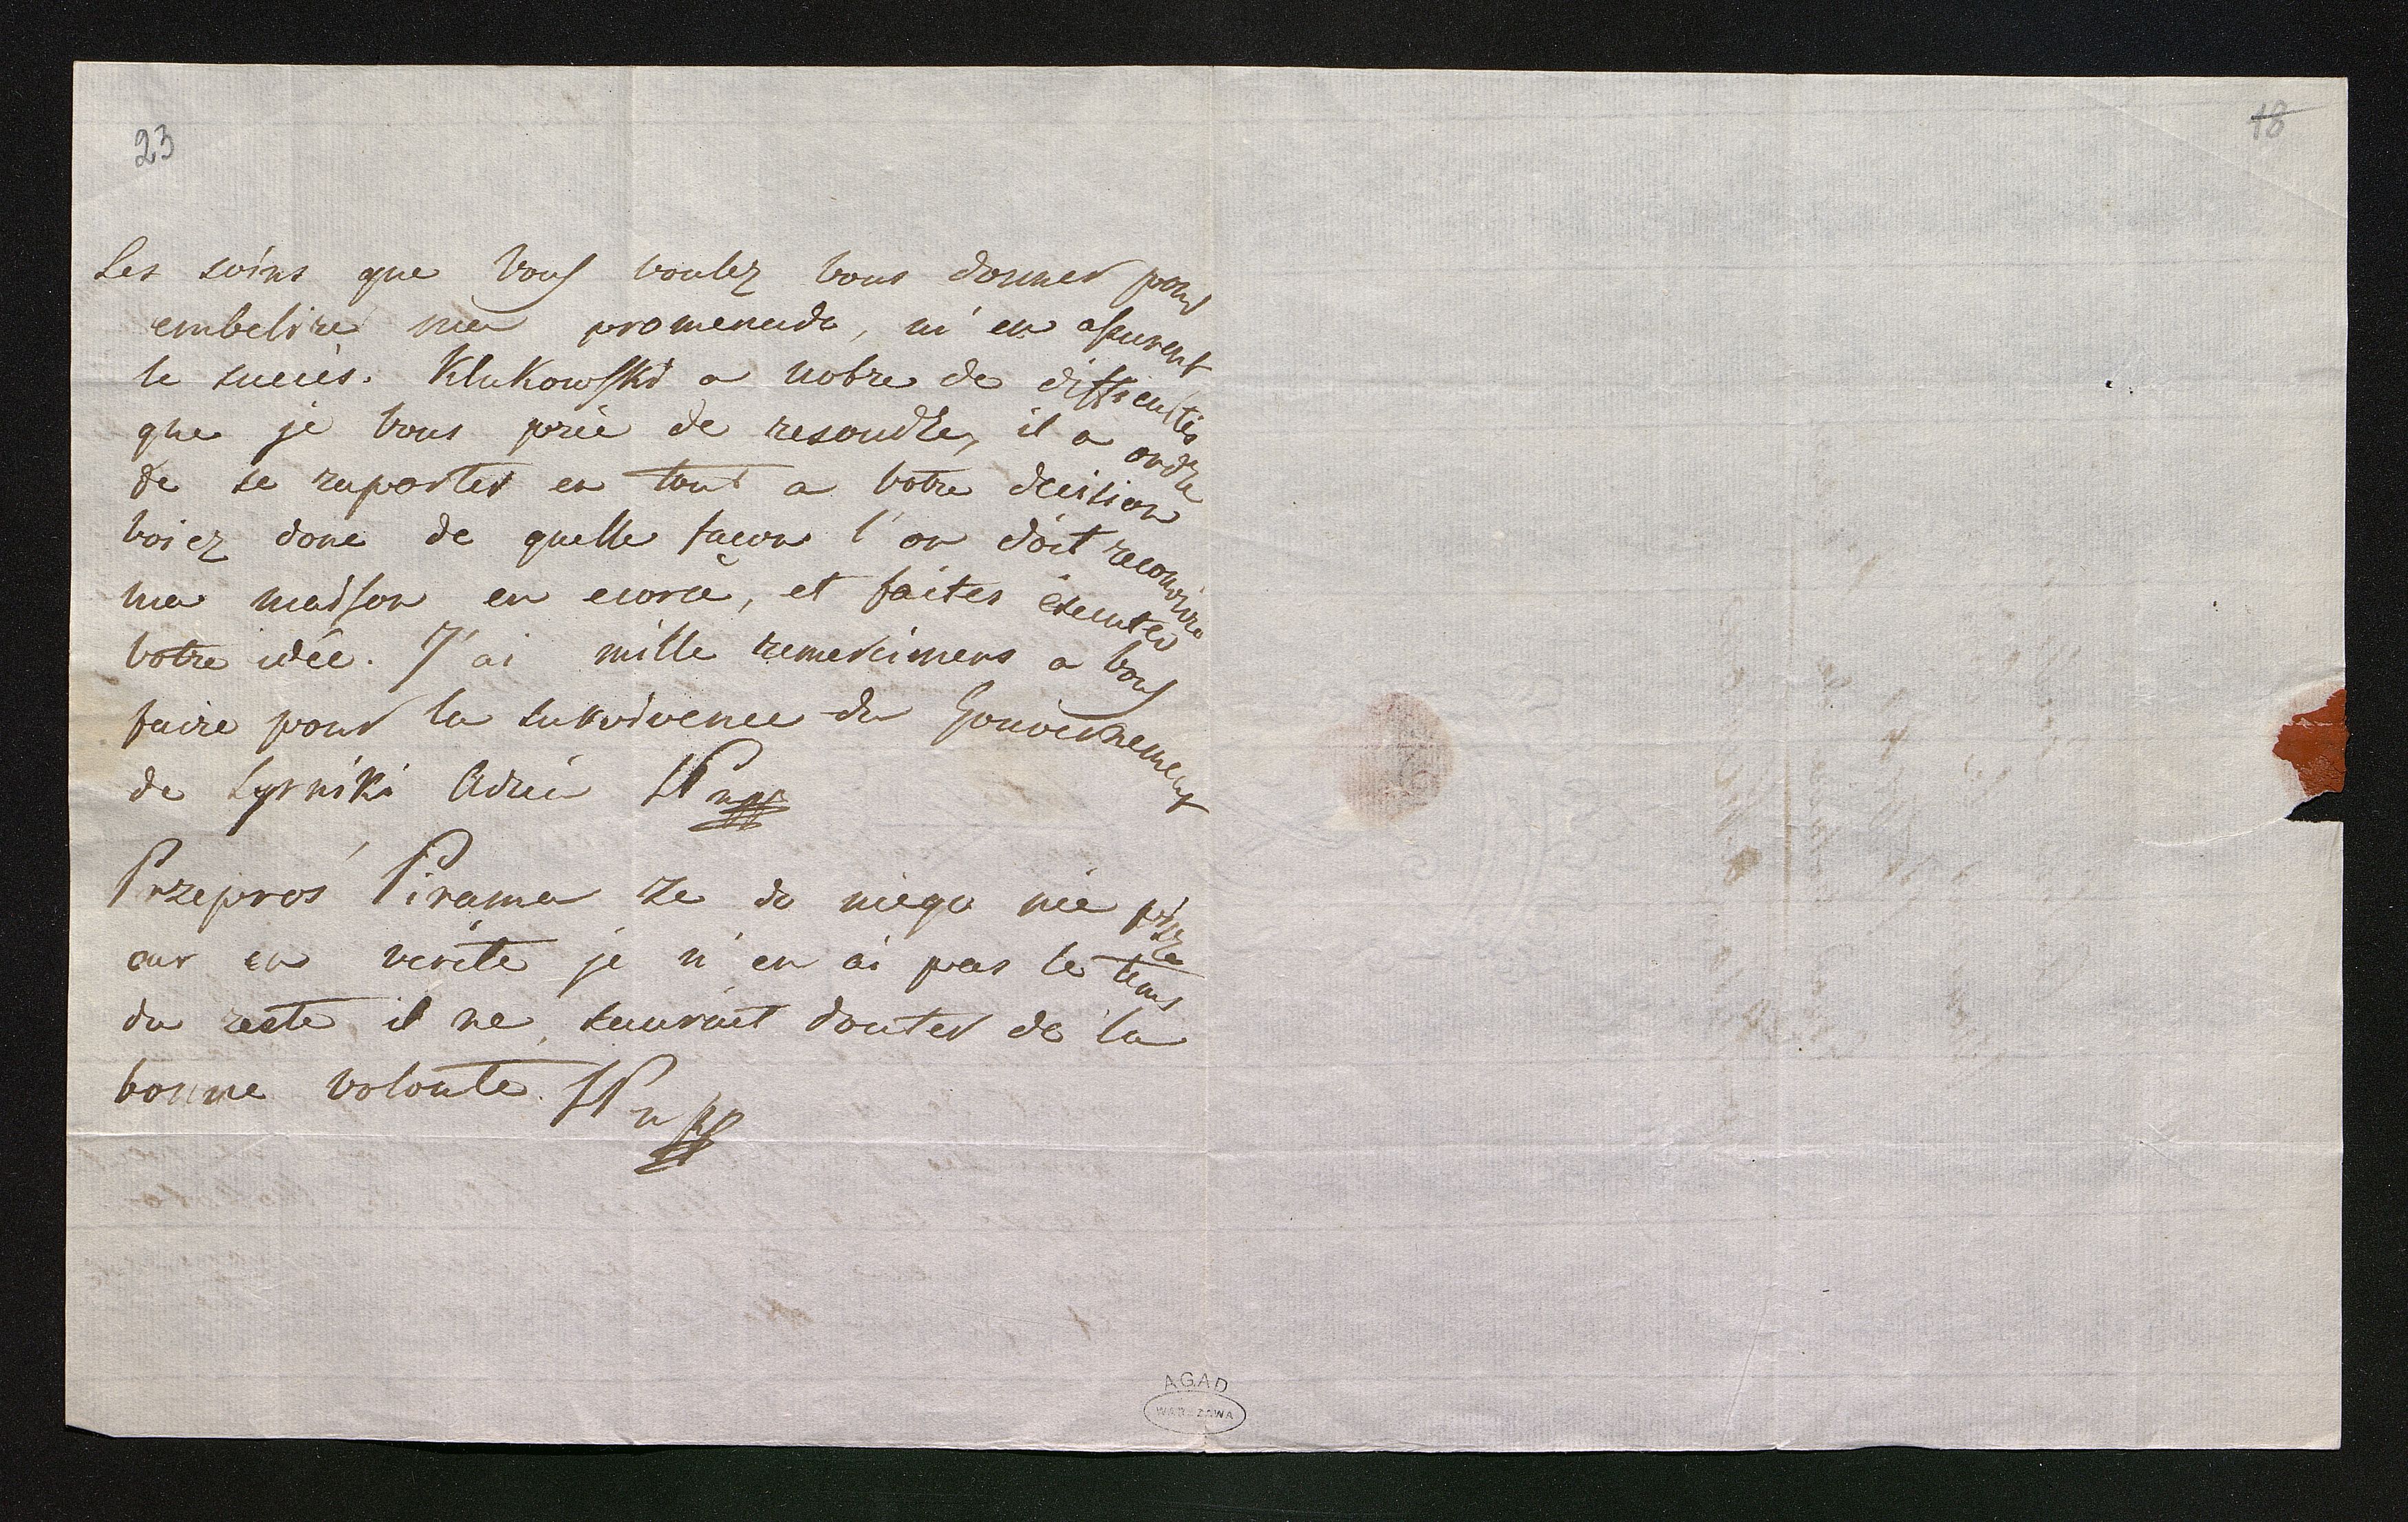 23
18
Les soins que vous voulez vous donner pour
embelire ma promenade, m'en assurent
le succès. Klukowski a nobre de difficultés
que je vous prie de resoudre, il a ordre
de se raporter en tout a votre decision
voiez donc de quelle facon l'on doit recouvrire
ma maison en ecorce, et faites éxecuter
votre idée. J'ai mille remercimens a vous
faire pour la survivence du Gouvernement
de Syrniki Adieu HP
Przeproś Pirama ze do niego nie pisze
car en verité je n'en ai pas le tems
du reste il ne sauroit douter de la
bonne volonte. HP
A.G.A.D
WARSZAWA